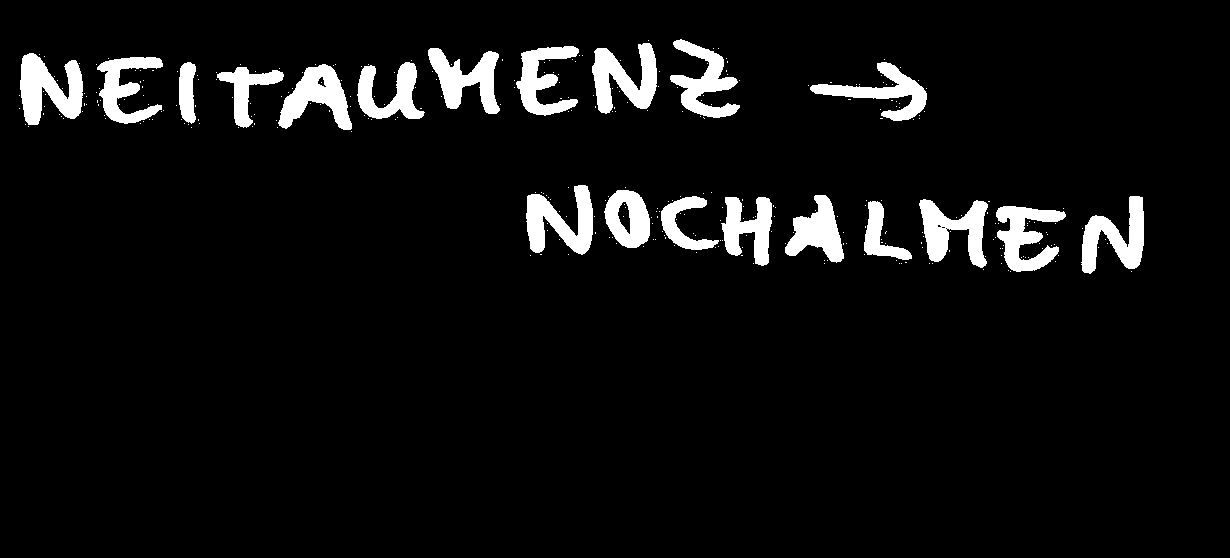 NEITAUMENZ →
NOCHALMEN